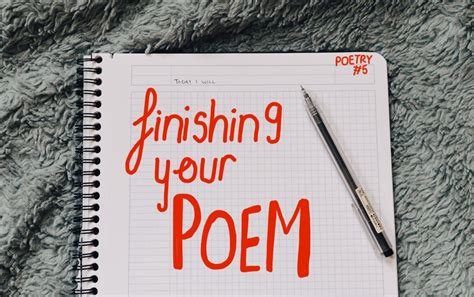 POETRY
#5
TODAY I WILL
finishing
your
POEM